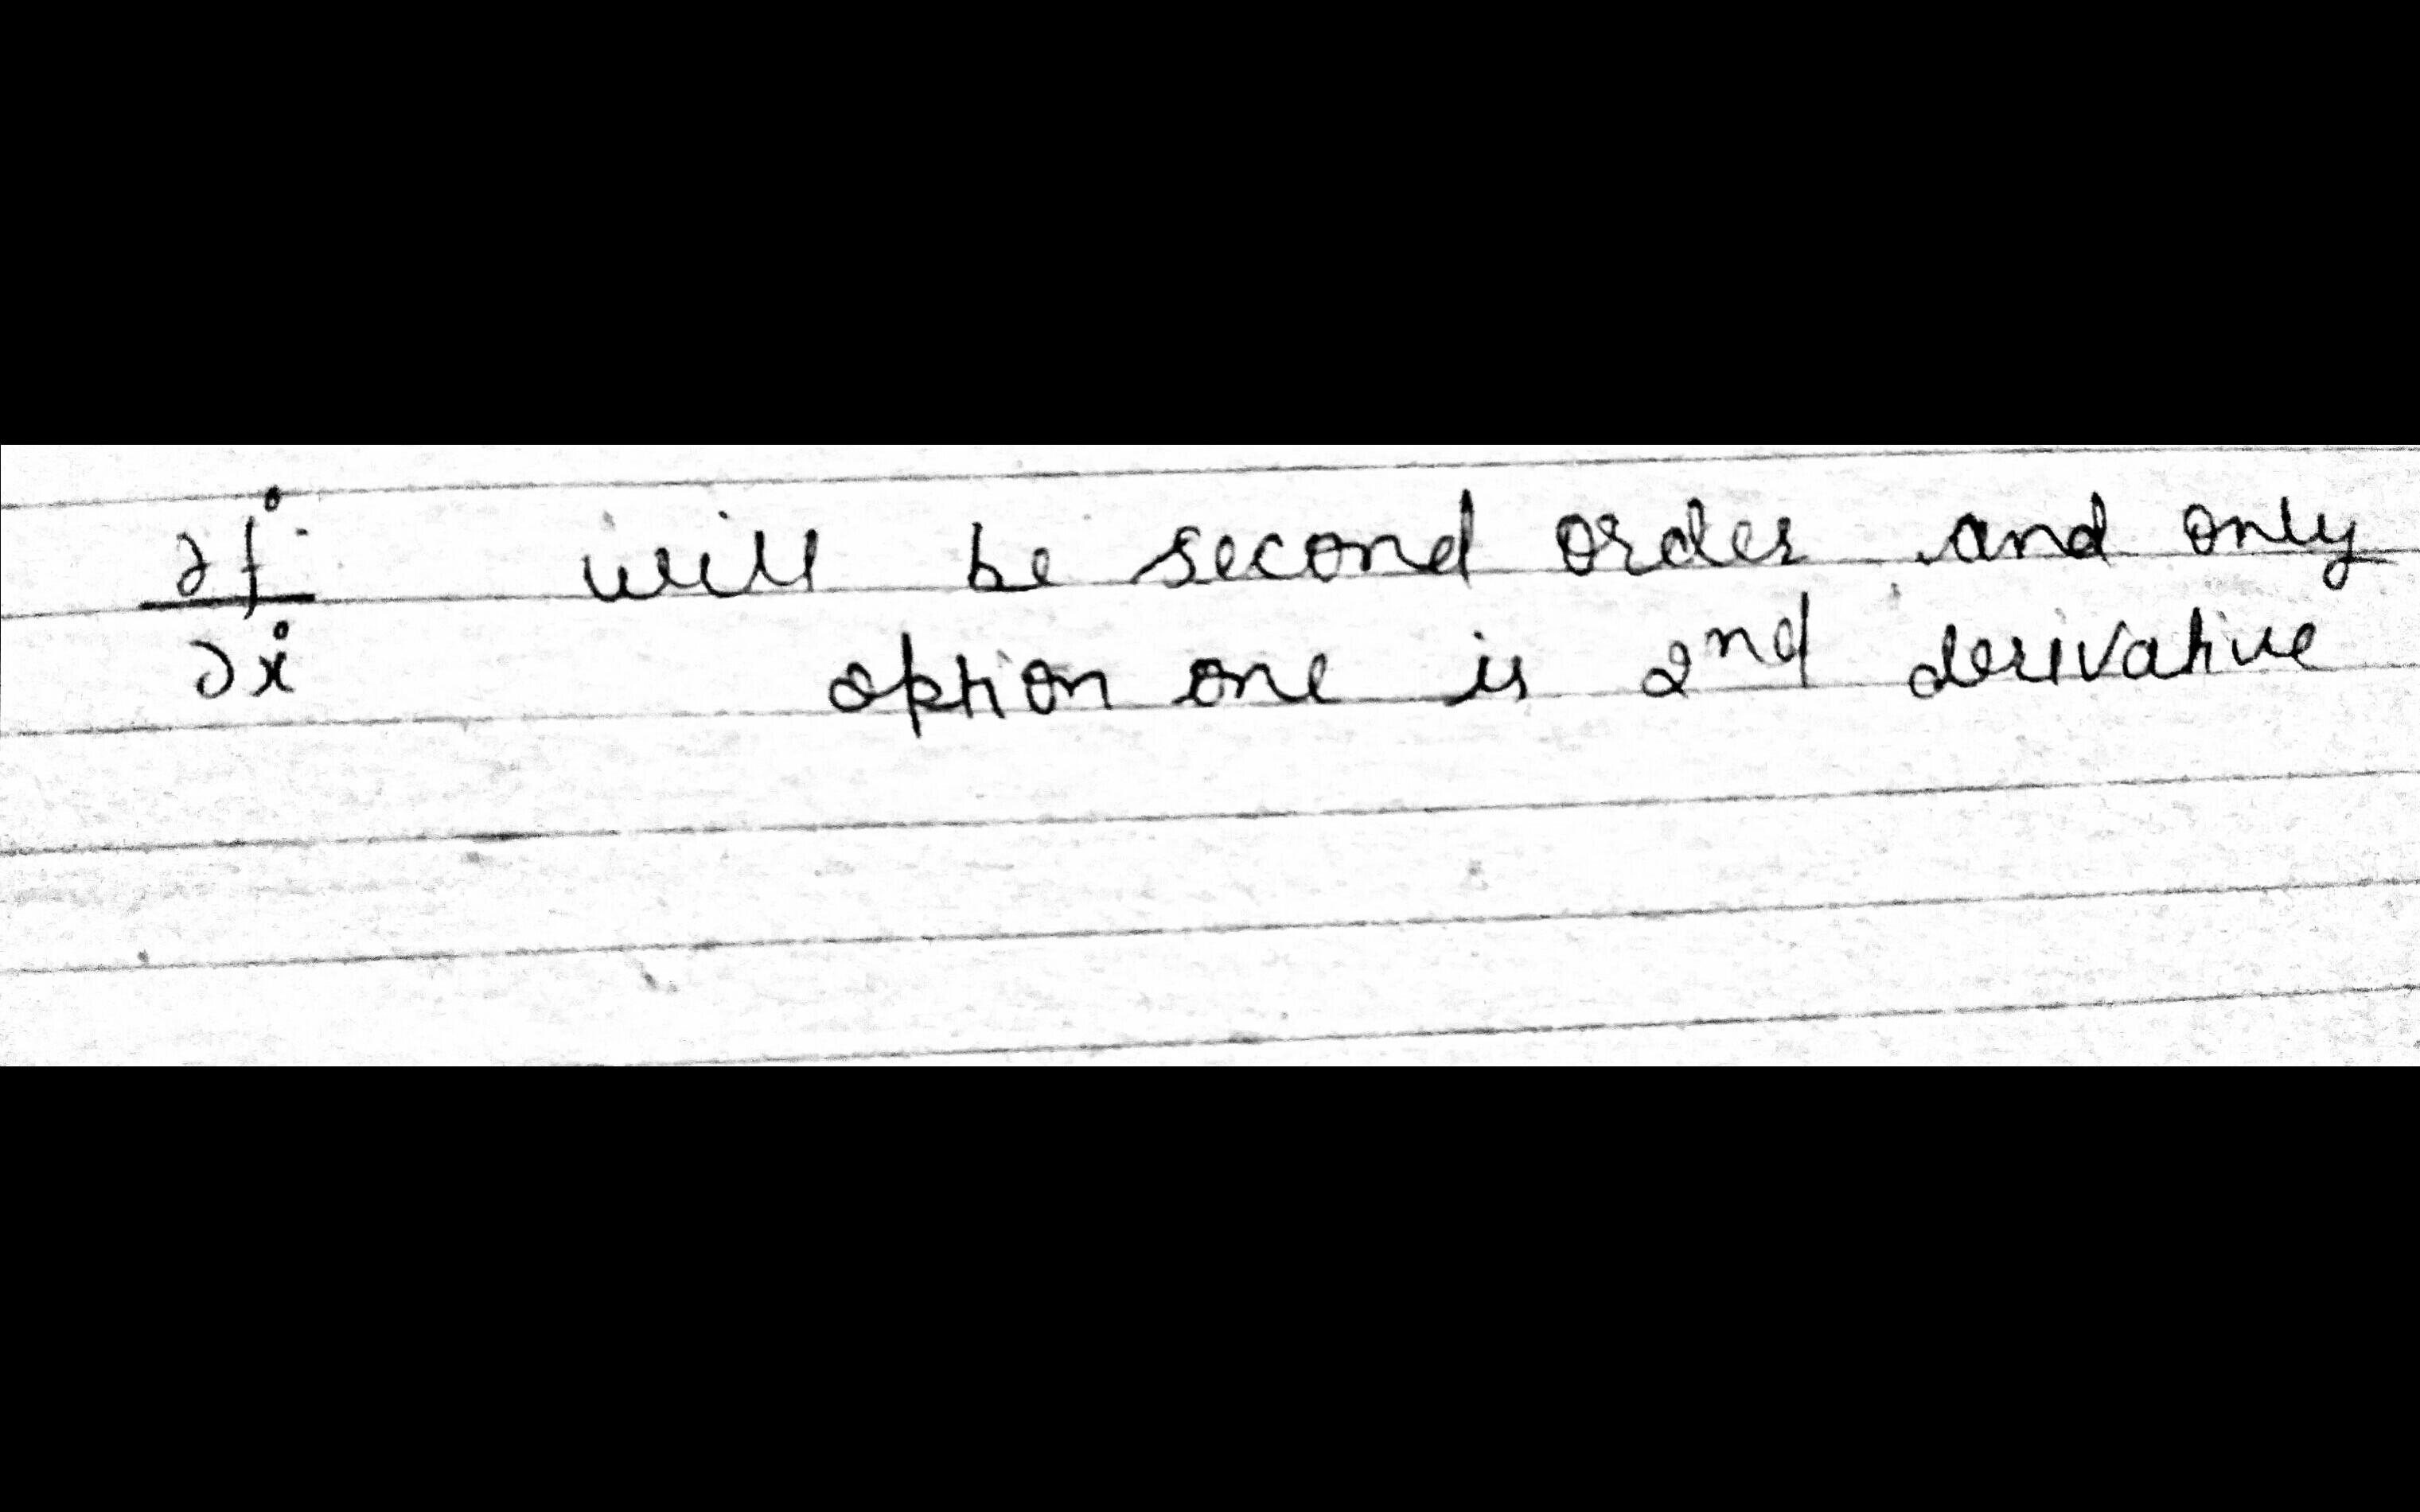 ∂ḟ will be second order and only
∂ẋ option one is 2nd derivative